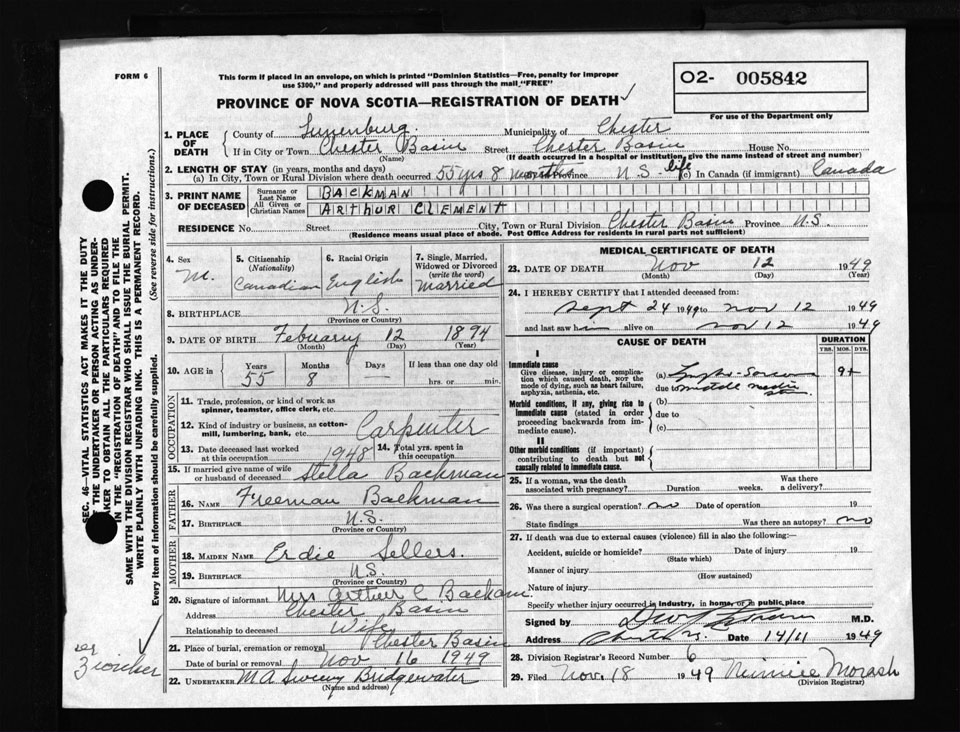 FORM 6
This form if placed in an envelope, on which is printed "Dominion Statistics—Free, penalty for improper
use $300," and properly addressed will pass through the mail "FREE"
O2- 005842
PROVINCE OF NOVA SCOTIA—REGISTRATION OF DEATH
For use of the Department only
1. PLACE OF DEATH
County of Lunenburg Municipality of Chester
If in City or Town Chester Basin Street Chester Basin House No.
(Name) (If death occurred in a hospital or institution, give the name instead of street and number)
2. LENGTH OF STAY (in years, months and days)
(a) In City, Town or Rural Division where death occurred 55 yrs 8 months Province N.S. life (c) In Canada (if immigrant) Canada
3. PRINT NAME OF DECEASED
Surname or Last Name BACKMAN
All Given or Christian Names ARTHUR CLEMENT
RESIDENCE No. Street City, Town or Rural Division Chester Basin Province N.S.
(Residence means usual place of abode. Post Office Address for residents in rural parts not sufficient)
4. Sex M.
5. Citizenship (Nationality) Canadian
6. Racial Origin English
7. Single, Married, Widowed or Divorced (write the word) Married
8. BIRTHPLACE N.S.
(Province or Country)
9. DATE OF BIRTH Febuary 12 1894
(Month) (Day) (Year)
10. AGE in Years 55 Months 8 Days — If less than one day old
hrs. or min.
OCCUPATION
11. Trade, profession, or kind of work as
spinner, teamster, office clerk, etc.
12. Kind of industry or business, as cotton-
mill, lumbering, bank, etc. Carpenter
13. Date deceased last worked at this occupation 1948
14. Total yrs. spent in this occupation
15. If married give name of wife
or husband of deceased Stella Backman
FATHER
16. NAME Freeman Backman
17. BIRTHPLACE N.S.
(Province or Country)
MOTHER
18. MAIDEN NAME Erdie Sellers.
19. BIRTHPLACE N.S.
(Province or Country)
20. Signature of informant Mrs Arthur C Backman
Address Chester Basin
Relationship to deceased Wife
21. Place of burial, cremation or removal Chester Basin
Date of burial or removal Nov 16 1949
22. UNDERTAKER M A Sweeny Bridgewater
(Name and address)
MEDICAL CERTIFICATE OF DEATH
23. DATE OF DEATH Nov 12 1949
(Month) (Day) (Year)
24. I HEREBY CERTIFY that I attended deceased from:
Sept 24 1949 to Nov 12 1949
and last saw him alive on Nov 12 1949
CAUSE OF DEATH
DURATION
YRS. MOS. DYS.
I
Immediate cause
Give disease, injury or complica-
tion which caused death, NOT the
mode of dying, such as heart failure,
asphyxia, asthenia, etc.
(a) 9+
due to
Morbid conditions, if any, giving rise to
immediate cause (stated in order
proceeding backwards from im-
mediate cause).
(b)
due to
(c)
II
Other morbid conditions (if important)
contributing to death but not
causally related to immediate cause.
25. If a woman, was the death
associated with pregnancy? Duration weeks. Was there
a delivery?
26. Was there a surgical operation? no Date of operation 19
State findings Was there an autopsy? no
27. If death was due to external causes (violence) fill in also the following:—
Accident, suicide or homicide? Date of injury 19
(State which)
Manner of injury
(How sustained)
Nature of injury
Specify whether injury occurred in industry, in home, or in public place
Signed by M.D.
Address Date 14/11 1949
28. Division Registrar's Record Number 6
29. Filed Nov. 18 1949 Minnie Morash
(Division Registrar)
SEC. 46—VITAL STATISTICS ACT MAKES IT THE DUTY
OF THE UNDERTAKER OR PERSON ACTING AS UNDER-
TAKER TO OBTAIN ALL THE PARTICULARS REQUIRED
IN THE "REGISTRATION OF DEATH" AND TO FILE THE
SAME WITH THE DIVISION REGISTRAR WHO SHALL ISSUE THE BURIAL PERMIT.
WRITE PLAINLY WITH UNFADING INK. THIS IS A PERMANENT RECORD.
Every item of information should be carefully supplied. (See reverse side for instructions.)
Zwicker